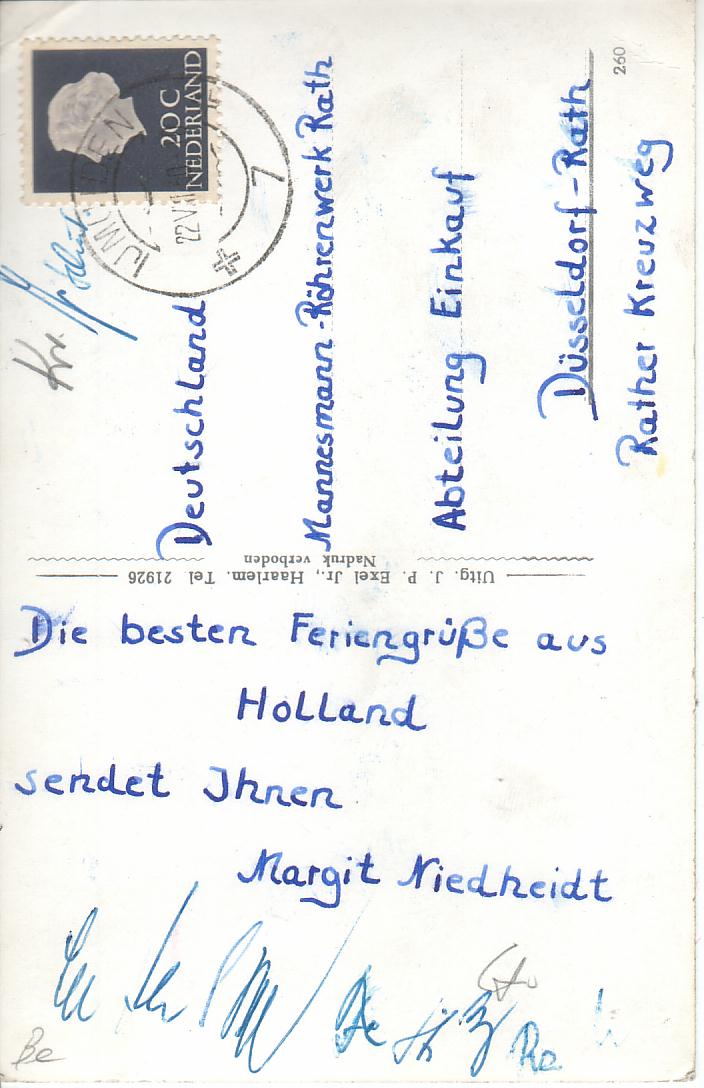 Die besten Feriengrüße aus
Holland
sendet Ihnen
Margit Niedheidt
Deutschland
Mannesmann-Röhrenwerk Rath
Abteilung Einkauf
Düsseldorf-Rath
Rather Kreuzweg
Uitg. J. P. Exel Jr., Haarlem. Tel 21926
Nadruk verboden
260
20 C
NEDERLAND
IJMUIDEN
Kr.
Be
Re